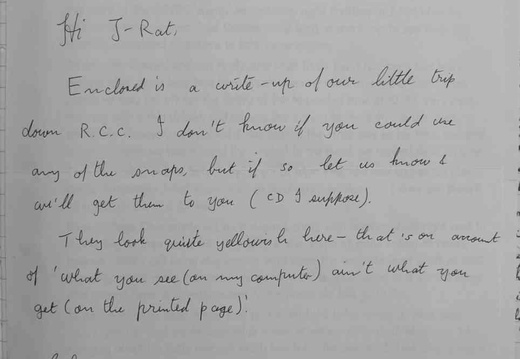 Hi J-Rat,
Enclosed is a write-up of our little trip
down R.C.C. I don't know if you could use
any of the snaps, but if so let us know &
we'll get them to you (CD I suppose).
They look quite yellowish here - that's on account
of 'what you see (on my computer) ain't what you
get (on the printed page)'.